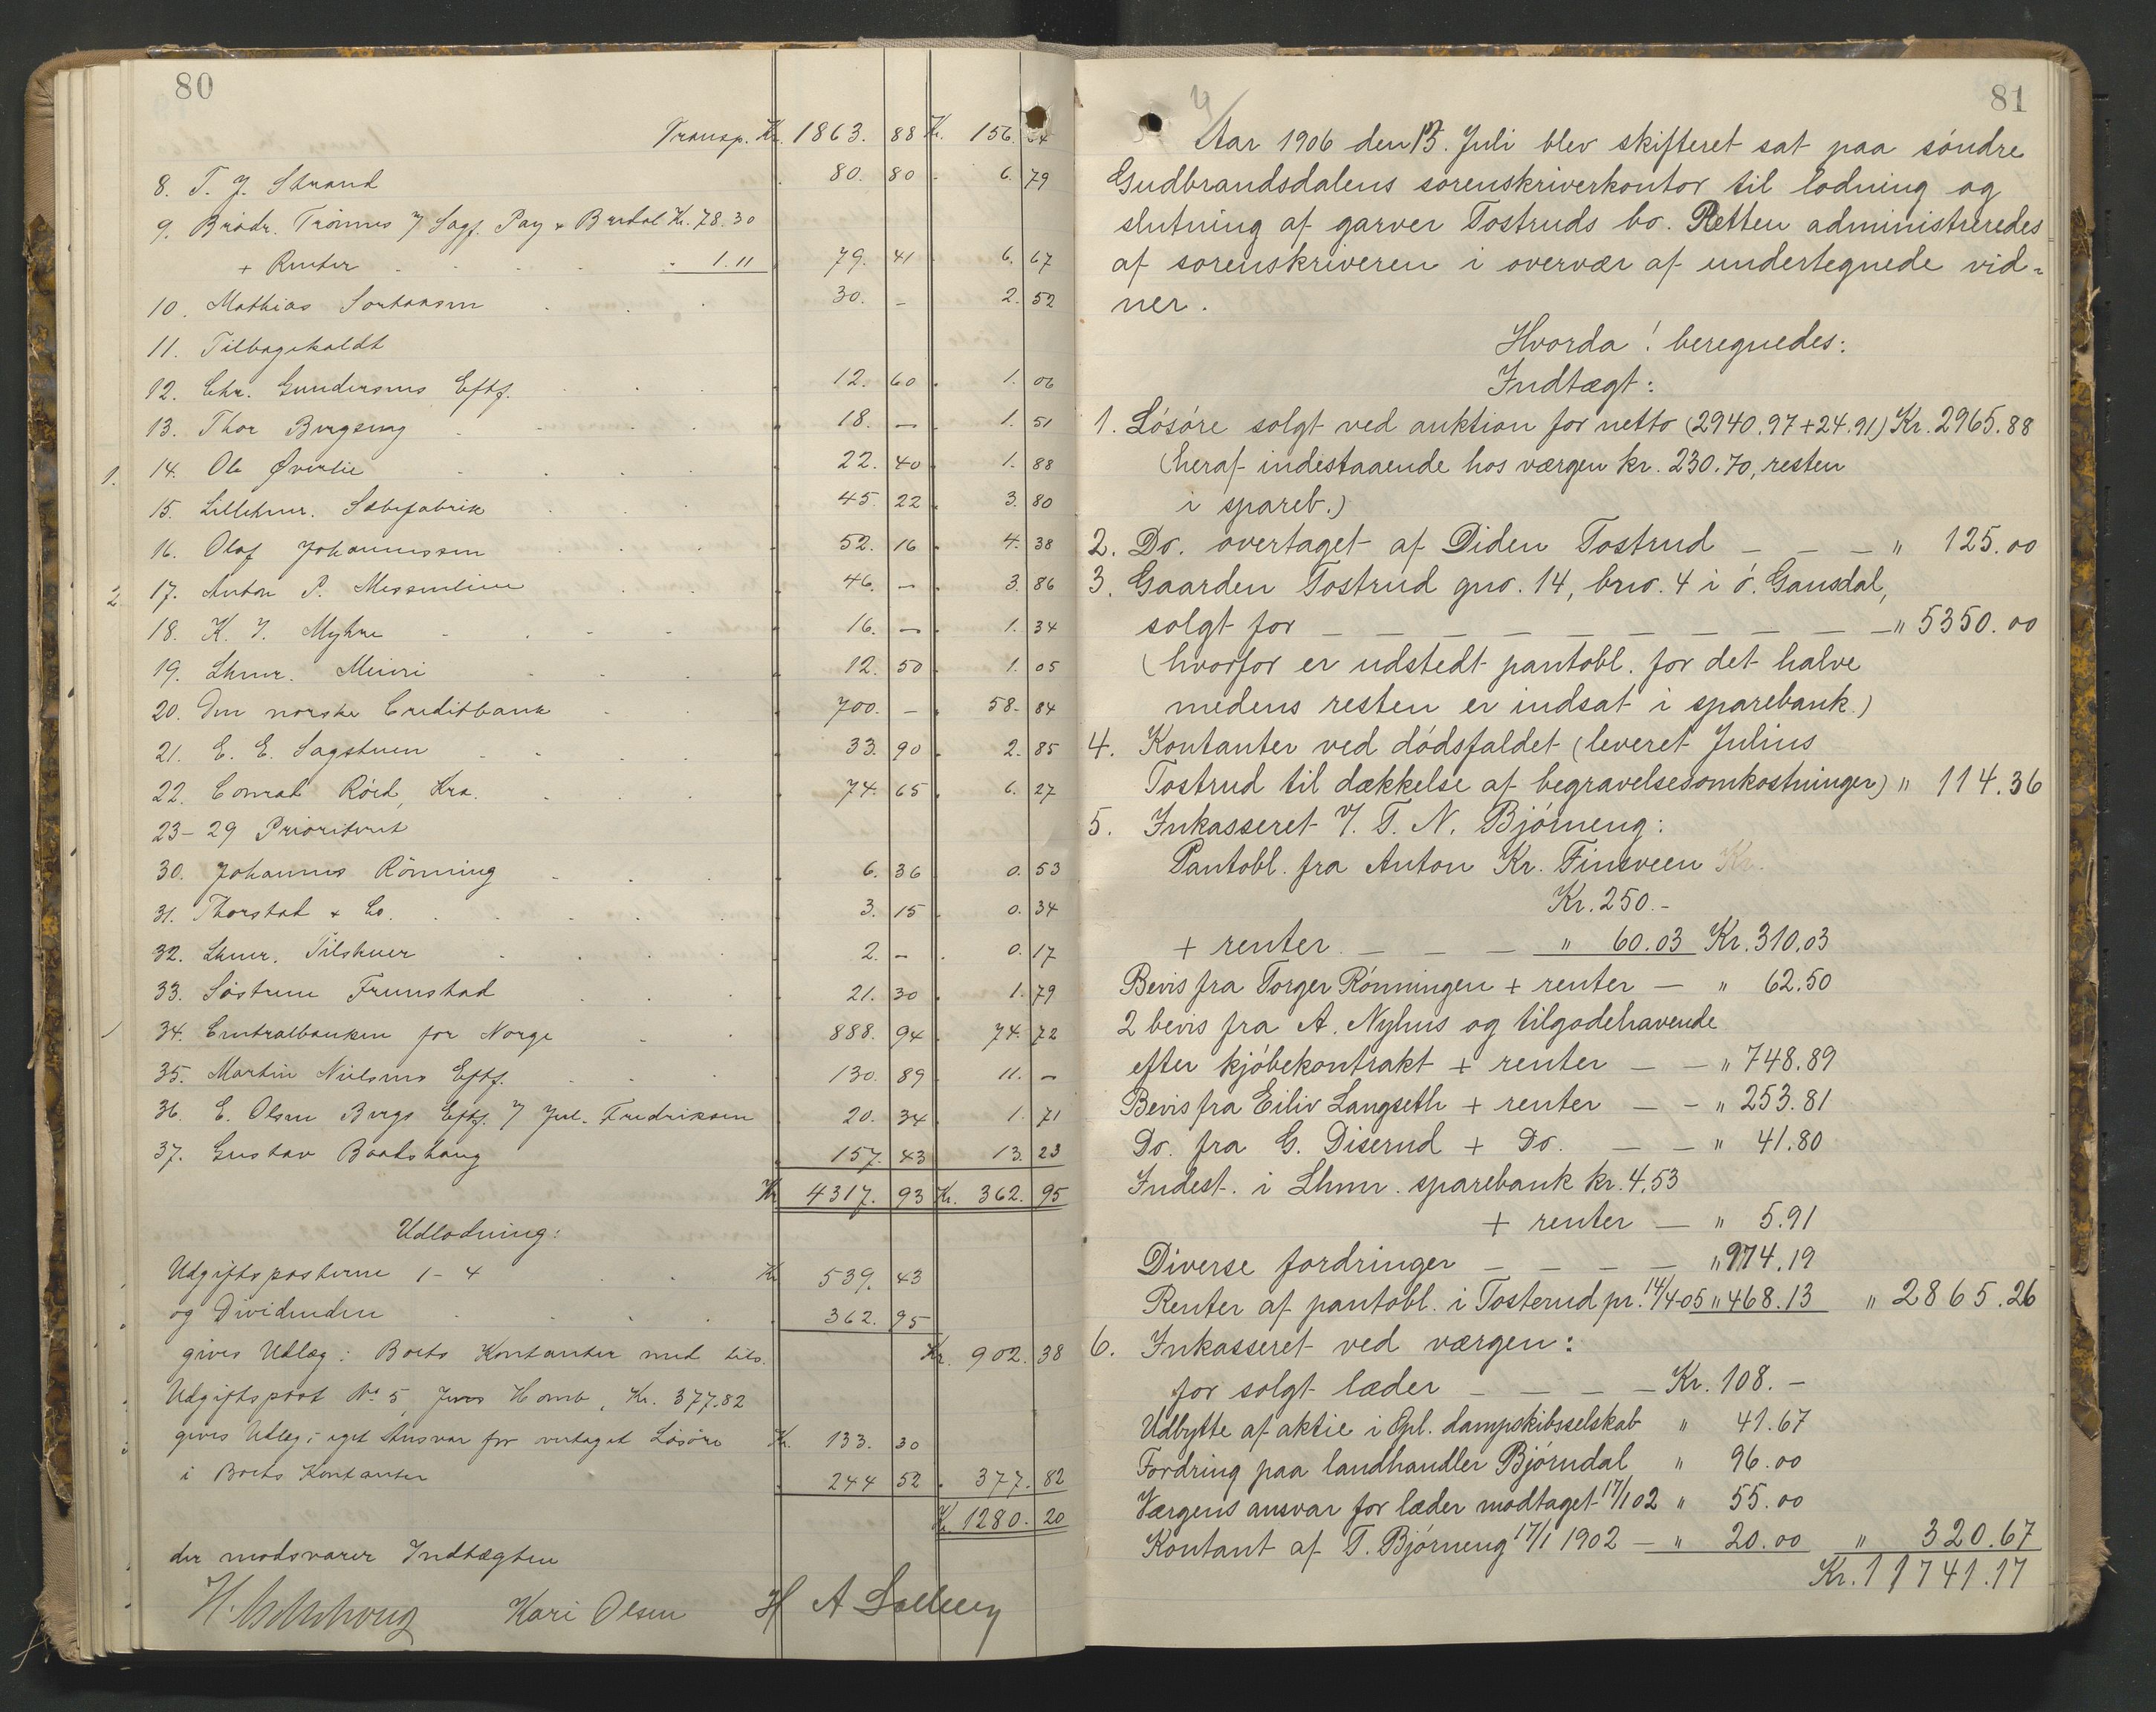 80
Transp. Kr. 1863. 88 Kr. 156. 24
8. T. J. Strand 80. 80 6. 79
9. Brödr. Trønnes Kr. 78.30
+ Renter 1.11 79. 41 6. 67
10. Mathias 30. – 2. 52
11. Tilbagekaldt
12. Chr. Gundersens Eftf. 12. 60 1. 06
13. Thor Bergseng 18. – 1. 51
1. 14. Ole Øverlie 22. 40 1. 88
15. Lillehmr. Sæbefabrik 45. 22 3. 80
16. Olof Johannessen 52. 16 4. 38
2 17. Anton P. Messenlien 46. – 3. 86
18. K. I. Myhre 16. – 1. 34
19. Lhmr. Meieri 12. 50 1. 05
20. Den norske Creditbank 700. – 58. 84
21. E. E. Sagstuen 33. 90 2. 85
22. Conrad Röed, Kra. 74. 65 6. 27
23–29 Prioritert
30. Johannes Rönning 6. 36 0. 53
31. Thorstad & Co. 3. 15 0. 34
32. Lhmr. Tilskuer 2. – 0. 17
33. Söstrene Frunstad 21. 30 1. 79
34. Centralbanken for Norge 888. 94 74. 72
35. Martin Nielsens Eftf. 130. 89 11. –
36. E. Olsen Bergs Eftf. v/ Jul. Fredriksen 20. 34 1. 71
37. Gustav Baatshaug 157. 43 13. 23
Kr. 4317. 93 Kr. 362. 95
Udlodning:
Udgiftsposterne 1–4 Kr. 539. 43
og Dividenden 362. 95
gives Udlæg i Boets Kontanter med tils. Kr. 902. 38
Udgiftspost No 5, Jens Homb, Kr. 377.82
gives Udlæg i eget Ansvar for overtaget Lösöre Kr. 133. 30
i Boets Kontanter 244 52 377. 82
Kr. 1280. 20
der modsvarer Indtægten
Kari Olsen H A Solberg
81
Aar 1906 den 13. Juli blev skifteret sat paa söndre
Gudbrandsdalens sorenskriverkontor til lodning og
slutning af garver Tostruds bo. Retten administreredes
af sorenskriveren i overvær af undertegnede vid-
ner.
Hvorda! beregnedes:
Indtægt:
1. Lösöre solgt ved auktion for netto (2940.97+24.91) Kr. 2965.88
(heraf indestaaende hos værgen kr. 230.70, resten
i spareb.)
2. Do. overtaget af Diden Tostrud – – – " 125.00
3. Gaarden Tostrud gno. 14, brno. 4 i ö. Gausdal,
solgt for – – – – – – – – – – " 5350.00
(hvorfor er udstedt pantobl. for det halve
medens resten er indsat i sparebank.)
4. Kontanter ved dödsfaldet (leveret Julius
Tostrud til dækkelse af begravelsesomkostninger) " 114.36
5. Inkasseret v. T. N. Bjørneng:
Pantobl. fra Anton Kr. Finsveen Kr.
Kr. 250.–
+ renter – – – " 60.03 Kr. 310.03
Bevis fra Torger Rönningen + renter – " 62.50
2 bevis fra A. Nyhus og tilgodehavende
efter kjöbekontrakt + renter – – " 748.89
Bevis fra Eiliv Langseth + renter – – " 253.81
Do. fra G. Diserud + Do. – – " 41.80
Indest. i Lhmr. sparebank kr. 4,53
+ renter – " 5.91
Diverse fordringer – – – – " 974.19
Renter af pantobl. i Tosterud pr. 14/4-05 " 468.13 " 2865.26
6. Inkasseret ved værgen:
for solgt læder – – – – Kr. 108.–
Udbytte af aktie i Opl. dampskibsselskab " 41.67
Fordring paa landhandler Bjørndal " 96.00
Værgens ansvar for læder modtaget 17/1 02 " 55.00
Kontant af T. Bjørneng 17/1 1902 – " 20.00 " 320.67
Kr. 11741.17